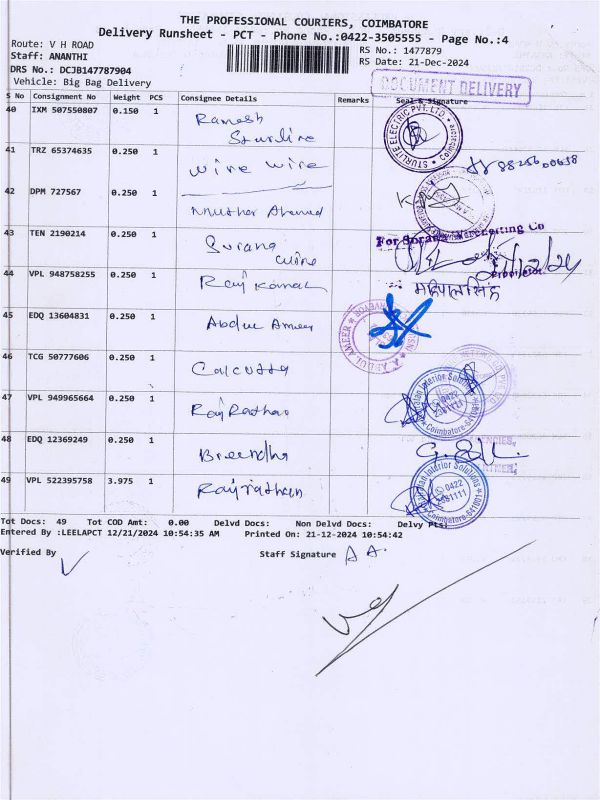 THE PROFESSIONAL COURIERS, COIMBATORE
Delivery Runsheet - PCT - Phone No.:0422-3505555 - Page No.:4
Route: V H ROAD
RS No.: 1477879
Staff: ANANTHI
RS Date: 21-Dec-2024
DRS No.: DCJB147787904
Vehicle: Big Bag Delivery
DOCUMENT DELIVERY
S No Consignment No Weight PCS Consignee Details Remarks Seal & Signature
40 IXM 507550807 0.150 1 Ramesh
Sturline
STURLITE ELECTRIC PVT. LTD. Coimbatore
41 TRZ 65374635 0.250 1 wire wire
42 DPM 727567 0.250 1
43 TEN 2190214 0.250 1 Surana
For Surana
44 VPL 948758255 0.250 1 Raj Kamal
45 EDQ 13604831 0.250 1 Abdul Ameer
ABDUL AMEER
46 TCG 50777606 0.250 1 Calcutta
47 VPL 949965664 0.250 1
Interior Solutions 0422 Coimbatore-641001
48 EDQ 12369249 0.250 1 Breendha
49 VPL 522395758 3.975 1
Interior Solutions 0422 Coimbatore-641001
Tot Docs: 49 Tot COD Amt: 0.00 Delvd Docs: Non Delvd Docs: Delvy Pts:
Entered By :LEELAPCT 12/21/2024 10:54:35 AM Printed On: 21-12-2024 10:54:42
Verified By
Staff Signature A A.